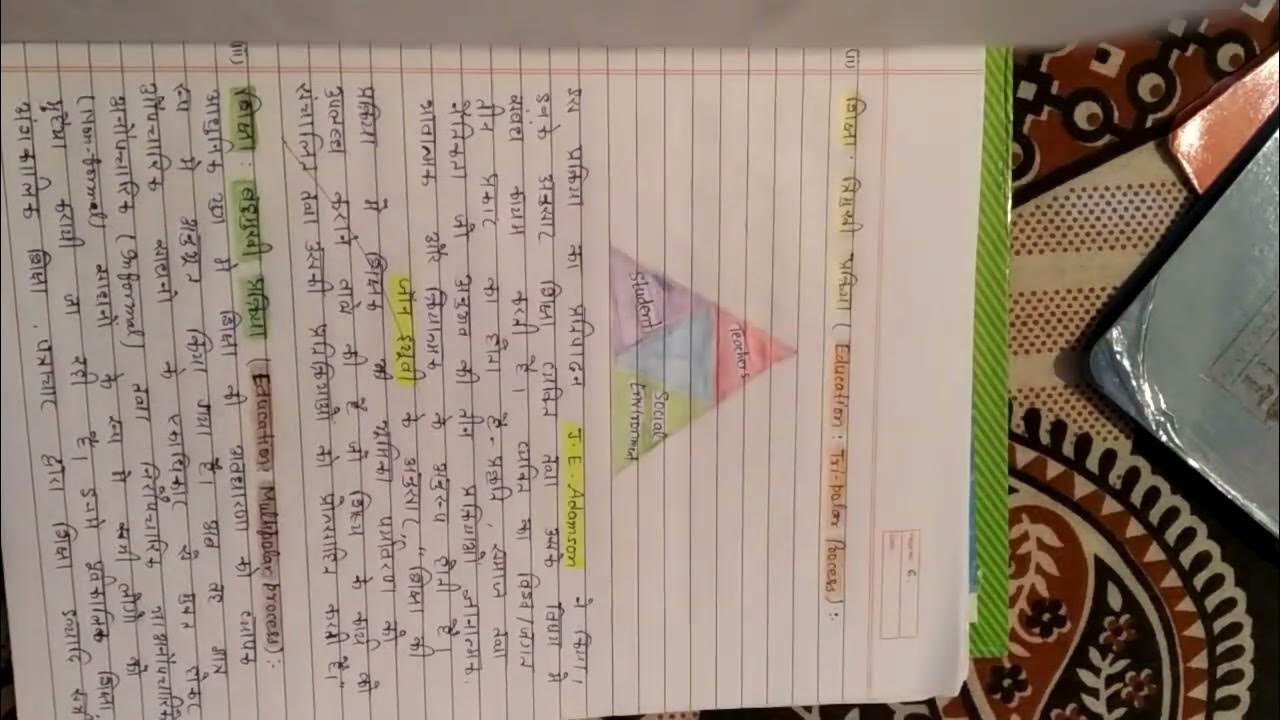 Page No. 6
(ii) शिक्षा : त्रिमुखी प्रक्रिया (Education : Tri-polar Process) :-
Teachers
Student
Social
Environment
इस प्रक्रिया का प्रतिपादन J. E. Adamson ने किया।
इनके अनुसार शिक्षा व्यक्ति तथा उसके विषय में
संबंध कायम करती है। व्यक्ति का विश्व/जगत
तीन प्रकार का होता है- प्रकृति, समाज तथा
नैतिकता जो अनुभव की तीन प्रतिक्रियाओं ज्ञानात्मक,
भावात्मक और क्रियात्मक के अनुरूप होती है।
जॉन ड्यूवी के अनुसार, "शिक्षा की
प्रक्रिया में शिक्षक की भूमिका पर्यावरण को
उपलब्ध कराने वाले की है जो शिष्य के कार्य को
संचालित तथा उसकी प्रतिक्रियाओं को प्रोत्साहित करती है।"
(iii) शिक्षा : बहुमुखी प्रक्रिया (Education: Multipolar process) :-
आधुनिक युग में शिक्षा की अवधारणा को व्यापक
रूप में प्रयुक्त किया गया है। अब वह मात्र
औपचारिक साधनों के एकाधिकार से मुक्त होकर
अनौपचारिक (Informal) तथा निरौपचारिक
(Non-formal) साधनों के रूप में सभी लोगों को
मुहैया करायी जा रही है। इनमें पूर्वकालिक शिक्षा,
अंशकालिक शिक्षा, पत्राचार द्वारा शिक्षा इत्यादि